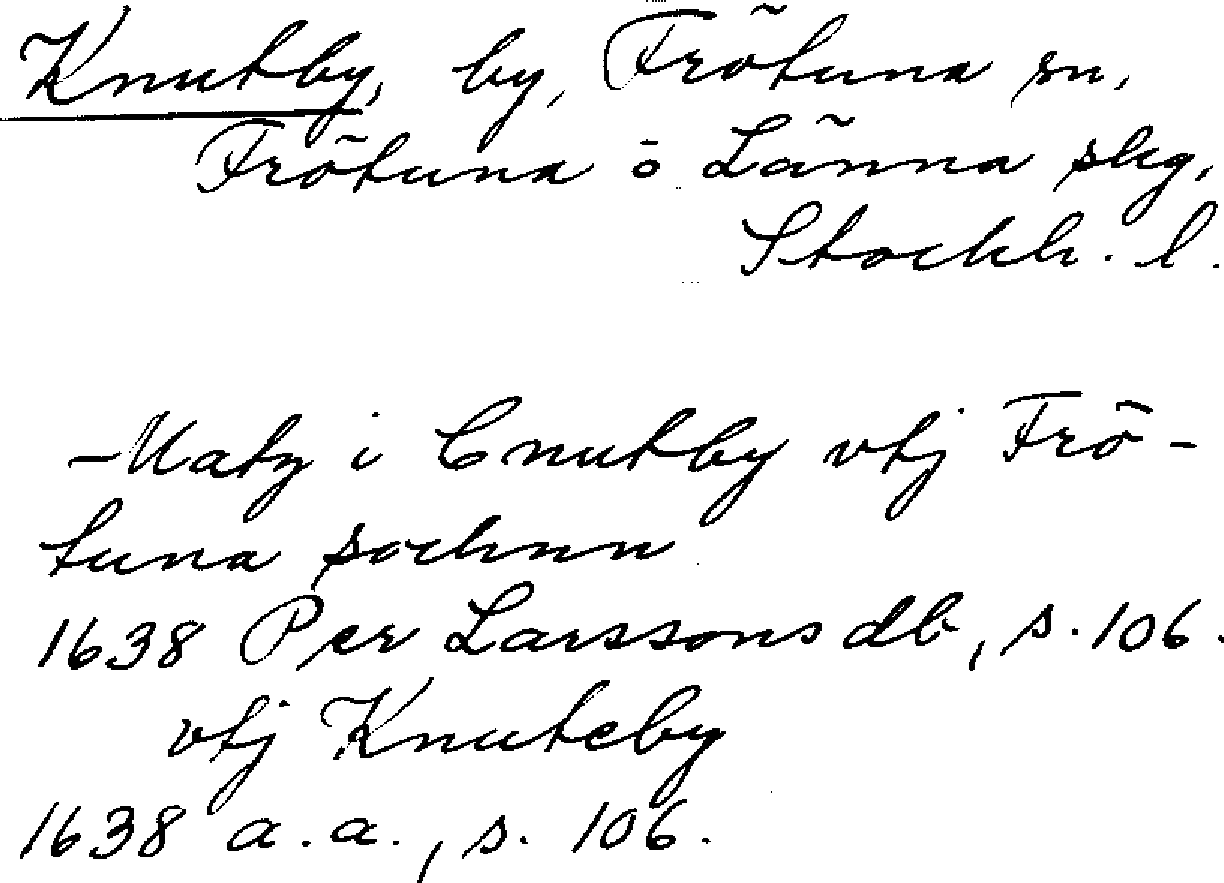 Knutby, by, Frötuna sn,
Frötuna o Länna skg,
Stockh. l.
-Matz i Cnutby vtj Frö-
tuna sochnn
1638 Per Larssons db, s. 106.
vtj Knuteby
1638 a.a., s. 106.